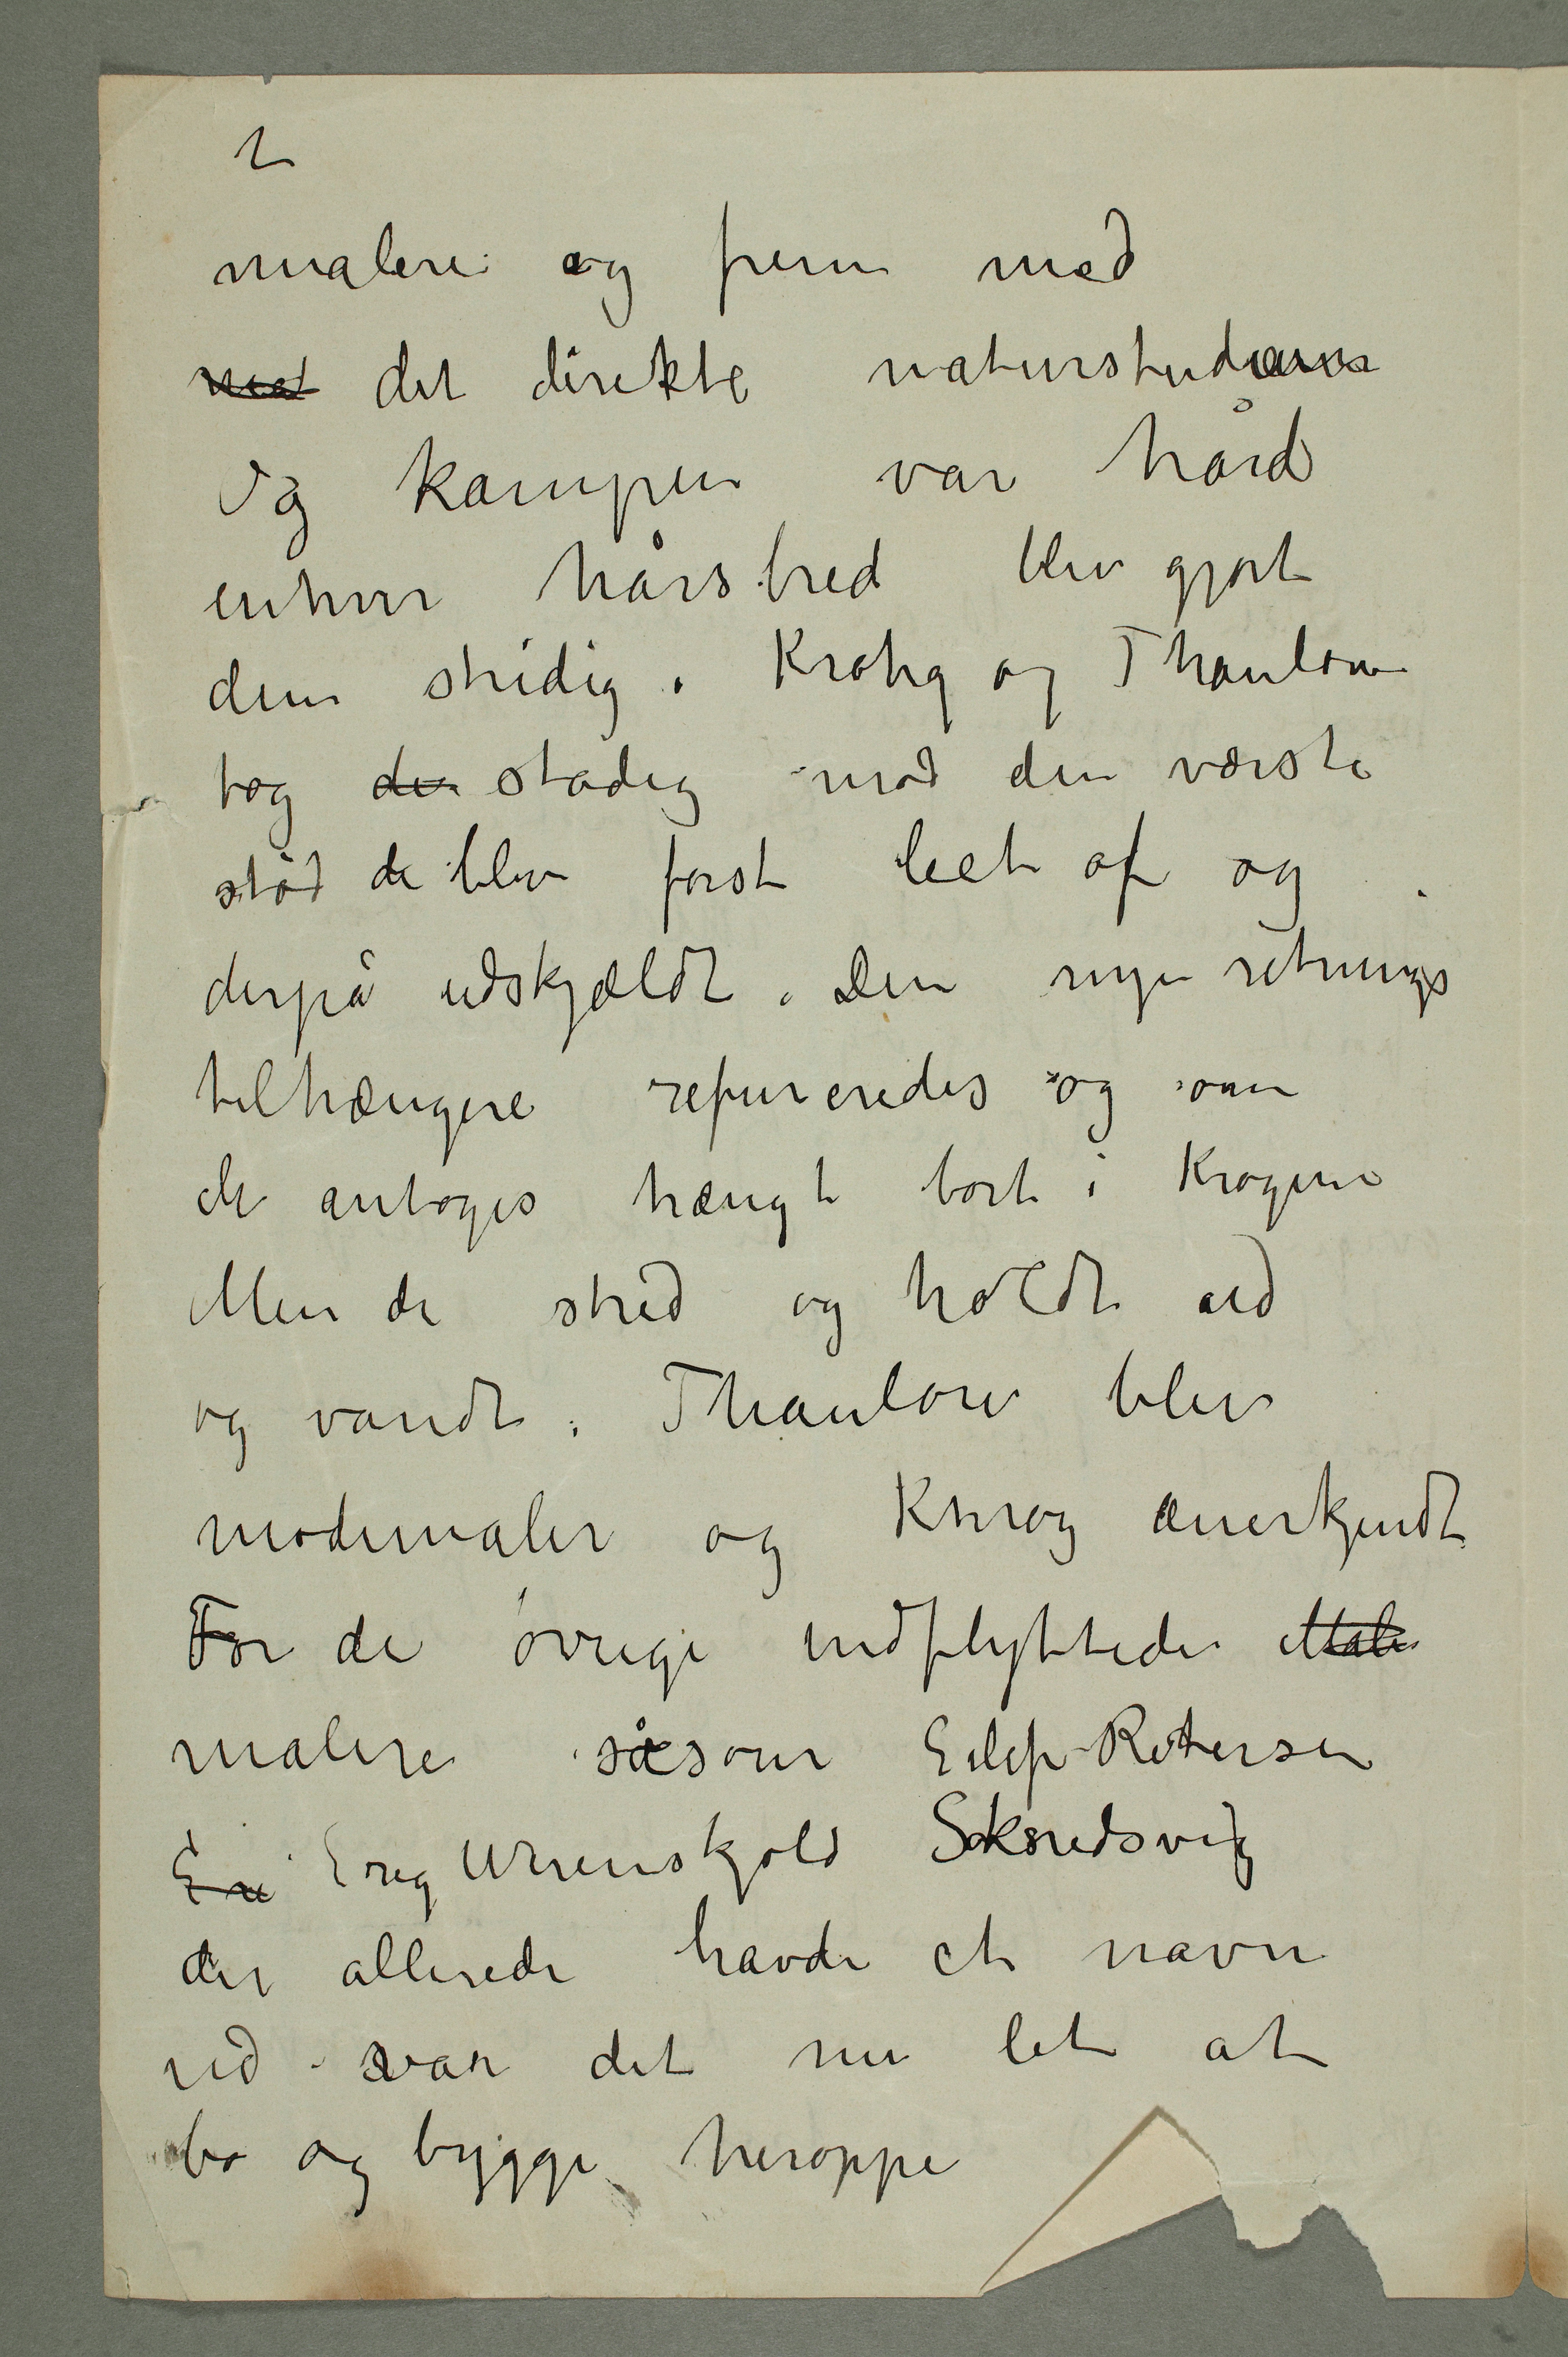 2
malere og frem med
med det direkte naturstudium
Og kampen var hård
enhver hårsbred blev gjort
dem stridig. Krohg og Thaulow
tog der stadig mod den værste
stød de blev først leet af og
derpå udskjældt. Den nye retnings
tilhængere refuseredes og om
de antoges hængt bort i Krogene
Men de stred og holdt ud
og vandt. Thaulow blev
modemaler og Khrog anerkjendt
For de øvrige indflyttede Male
malere såsom Eilif Petersen
Eri Erig Werenskjold Skredsvig
der allerede havde et navn
ud var det nu let at
bo og bygge heroppe